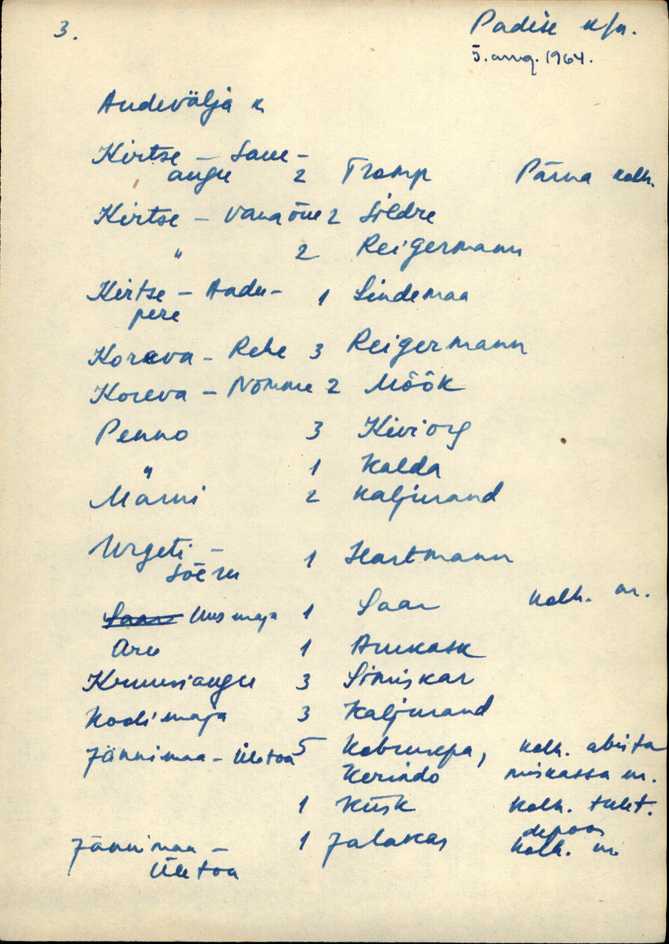 3.
Padise k/n.
5. aug. 1964.
Audevälja k
Kirtse – Saue-
augu 2 Tromp Pärna kolh.
Kirtse – Vanaõue 2 Sildre
" 2 Reigermann
Kirtse – Aadu- 1 Lindemaa
pere
Koreva – Rehe 3 Reigermann
Koreva – Nõmme 2 Möök
Penno 3 Kiviorg
" 1 Kalda
Manni 2 Kaljurand
Urgeti – 1 Hartmann
Sõeru
Saar Uusmaja 1 Saar kolh. m.
Aru 1 Arukask
Kruusiaugu 3 Simiskar
Koolimaja 3 Kaljurand
Jännimaa – Ületoa 5 Kobrusepa, kolh. abista
Kerindo miskassa m.
1 Küsk kolh. tulet.
depoos
Jännimaa – 1 Jalakas kolh. m
Ületoa